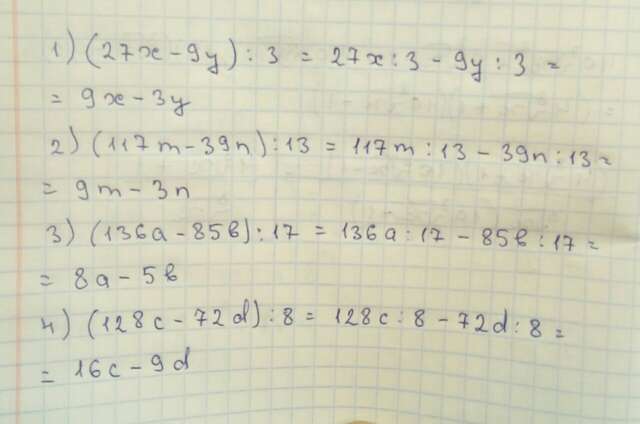 1) (27x - 9y) : 3 = 27x : 3 - 9y : 3 =
= 9x - 3y
2) (117m - 39n) : 13 = 117m : 13 - 39n : 13 =
= 9m - 3n
3) (136a - 85b) : 17 = 136a : 17 - 85b : 17 =
= 8a - 5b
4) (128c - 72d) : 8 = 128c : 8 - 72d : 8 =
= 16c - 9d